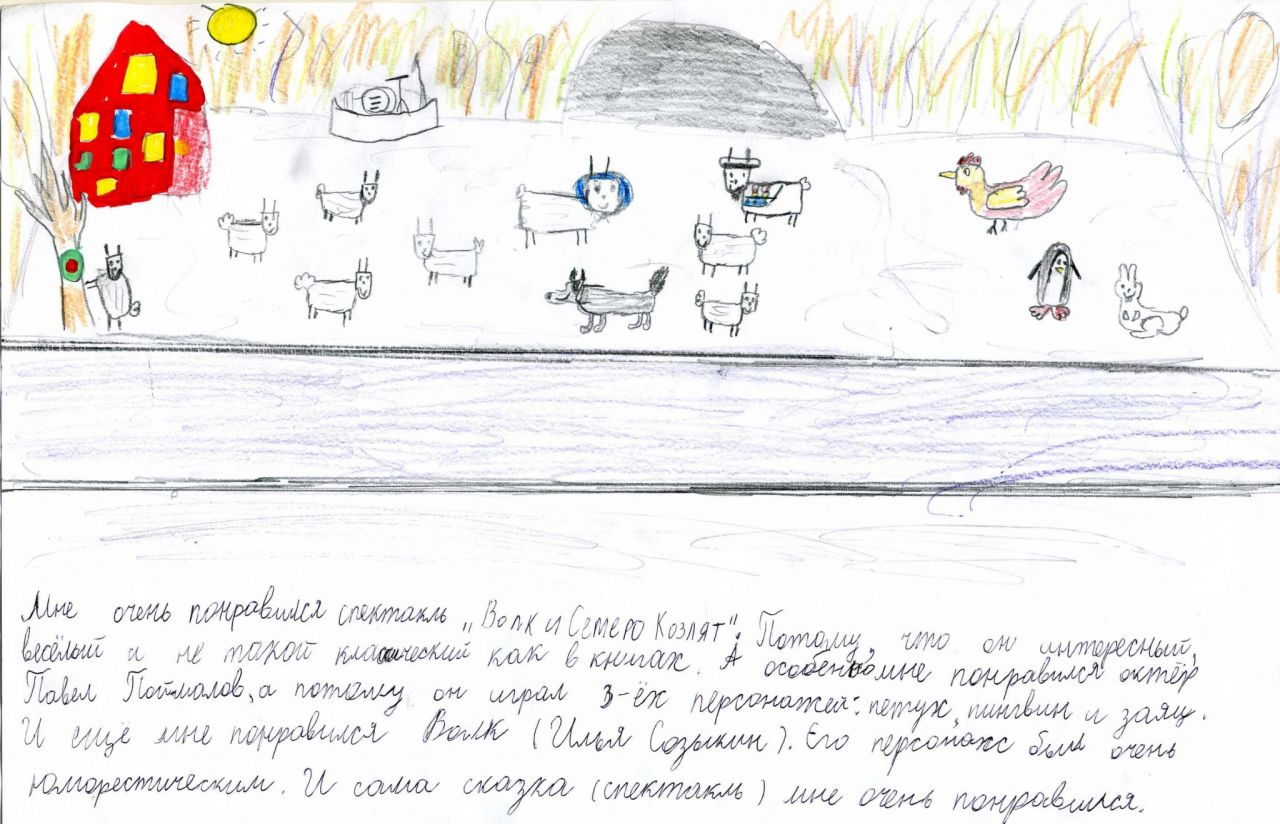 Мне очень понравился спектакль „Волк и Семеро Козлят". Потому, что он интересный,
весёлый и не такой классический как в книгах. А особенно мне понравился актёр
Павел Поймалов, а потому он играл 3-ёх персонажей: петух, пингвин и заяц.
И еще мне понравился Волк (Илья Созыкин). Его персонаж был очень
юморестическим. И сама сказка (спектакль) мне очень понравился.